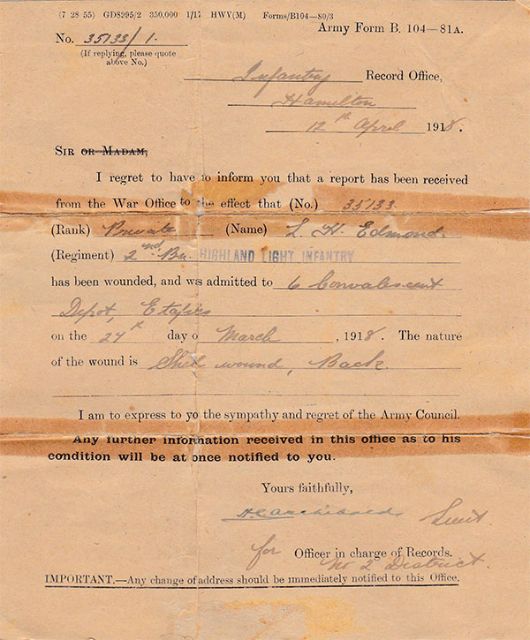 (7 28 55) GD8295/2 350,000 1/17 HWV(M) Forms/B104—80/3
Army Form B. 104—81A.
No. 35133/1.
(If replying, please quote
above No.)
Infantry Record Office,
Hamilton
12th April 1918.
SIR OR MADAM,
I regret to have to inform you that a report has been received
from the War Office to the effect that (No.) 35133
(Rank) Private (Name) L. H. Edmond
(Regiment) 2nd Bn. HIGHLAND LIGHT INFANTRY
has been wounded, and was admitted to 6 Convalescent
Depot, Etaples
on the 24th day o March, 1918. The nature
of the wound is Shell wound, Back.
I am to express to yo the sympathy and regret of the Army Council.
Any further information received in this office as to his
condition will be at once notified to you.
Yours faithfully,
Lieut
for Officer in charge of Records.
No 2 District.
IMPORTANT.—Any change of address should be immediately notified to this Office.